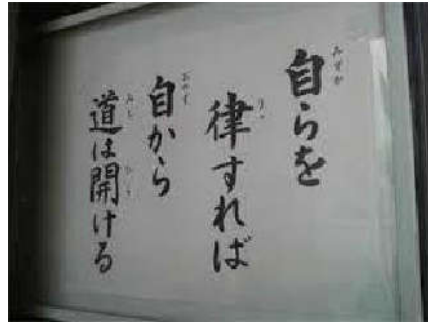 自らを
律すれば
自から
道は開ける